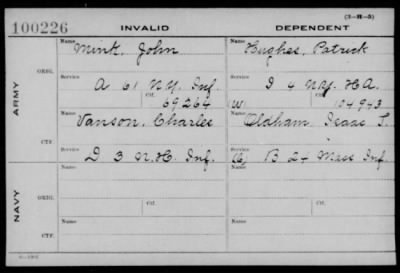 (3-H-5)
100226 INVALID DEPENDENT
Name Name
Mink, John Hughes, Patrick
ORIG. Service Service
A 61 N.Y. Inf. I 4 N.Y. H.A.
Ctf. Ctf.
69264 W 104943
ARMY
Name Name
Vanson, Charles Oldham, Isaac T.
CTF. Service Service
D 3 N.H. Inf. B 24 Mass Inf.
Name Name
ORIG. Service Ctf. Service Ctf.
NAVY
Name Name
CTF. Service Service